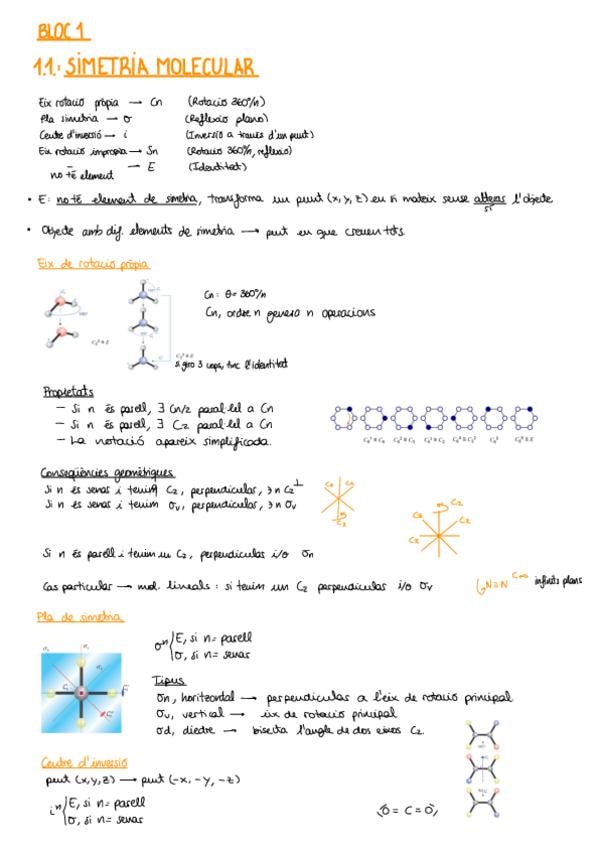 BLOC 1
1.1.: SIMETRIA MOLECULAR
Eix rotació pròpia → Cn (Rotació 360º/n)
Pla simetria → σ (Reflexió plano)
Centre d'inversió → i (Inversió a través d'un punt)
Eix rotació impropia → Sn (Rotació 360º/n, reflexió)
no té element → E (Identitat)
• E: no té element de simetria, transforma un punt (x, y, z) en si mateix sense alterar l'objecte
• Objecte amb dif. elements de simetria → punt en que creuen tots
Eix de rotació pròpia
Cn: θ = 360º/n
Cn, ordre n genera n operacions
si giro 3 cops, tinc l'identitat
Propietats
– Si n és parell, ∃ Cn/2 paral·lel a Cn
– Si n és parell, ∃ C2 paral·lel a Cn
– La notació apareix simplificada.
Conseqüències geomètriques
Si n és senar i tenim C2, perpendicular, ∃ n C2⊥
Si n és senar i tenim σv, perpendicular, ∃ n σv
C2 C2
C2
C2
C2
C2
Si n és parell i tenim un C2, perpendicular i/o σn
Cas particular → mol. lineals: si tenim un C2 perpendicular i/o σv
N≡N C∞ infinits plans
Pla de simetria
σⁿ { E, si n= parell
σ, si n= senar
Tipus
σn, horitzontal → perpendicular a l'eix de rotació principal
σv, vertical → eix de rotació principal
σd, diedre → bisecta l'angle de dos eixos C2.
Centre d'inversió
punt (x,y,z) → punt (-x, -y, -z)
iⁿ { E, si n= parell
σ, si n= senar
O = C = O